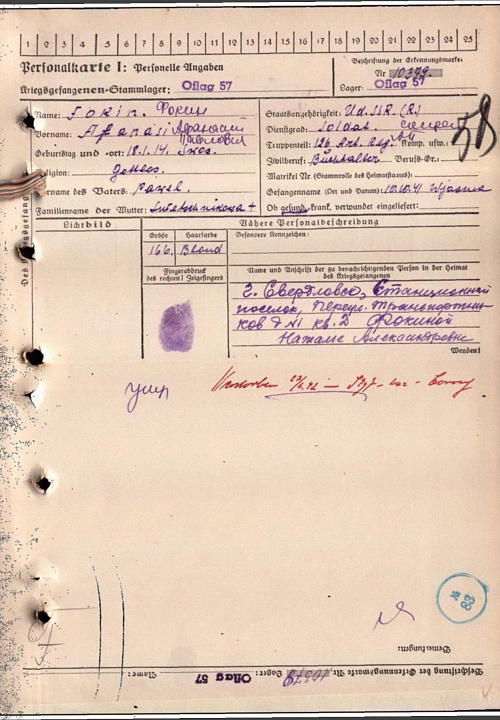 1 2 3 4 5 6 7 8 9 10 11 12 13 14 15 16 17 18 19 20 21 22 23 24 25
Personalkarte I: Personelle Angaben
Beschriftung der Erkennungsmarke
Nr. 10379
Kriegsgefangenen-Stammlager: Oflag 57
Lager: Oflag 57
58
Des Kriegsgefang
Name: Fokin. Фокин
Vorname: Afanasi Афанасий
Павлович
Geburtstag und -ort: 18.1.14.
Religion:
Vorname des Vaters: Pavel.
Familienname der Mutter: +
Staatsangehörigkeit: U.d.SSR. (R.)
Dienstgrad: Soldat
Truppenteil: 126 Art. Reg. Komp. usw.:
Zivilberuf: Buchhalter Berufs-Gr.:
Matrikel Nr. (Stammrolle des Heimatstaates):
Gefangenname (Ort und Datum): 10.10.41 Wjasma
Ob gesund, krank, verwundet eingeliefert:
Lichtbild
Nähere Personalbeschreibung
Größe Haarfarbe
Besondere Kennzeichen:
166. Blond
Fingerabdruck
des rechten! Zeigefingers
Name und Anschrift der zu benachrichtigenden Person in der Heimat
des Kriegsgefangenen
г. Свердловск, Станционный
поселок, переул. Транспортни-
ков д №1 кв. 2 Фокиной
Наталие Александровне
Wenden!
умер
Verstorben
83
Bemerkungen:
Beschriftung der Erkennungsmarke Nr. 10379 Lager: Oflag 57 Name: